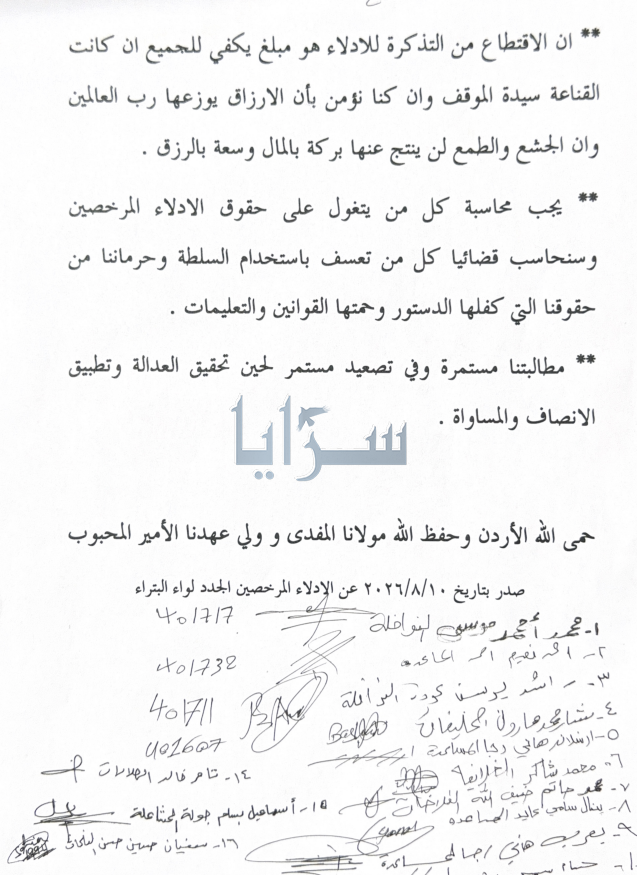 ** ان الاقتطاع من التذكرة للادلاء هو مبلغ يكفي للجميع ان كانت
القناعة سيدة الموقف وان كنا نؤمن بأن الارزاق يوزعها رب العالمين
وان الجشع والطمع لن ينتج عنها بركة بالمال وسعة بالرزق .
** يجب محاسبة كل من يتغول على حقوق الادلاء المرخصين
وسنحاسب قضائيا كل من تعسف باستخدام السلطة وحرماننا من
حقوقنا التي كفلها الدستور وحمتها القوانين والتعليمات .
** مطالبتنا مستمرة وفي تصعيد مستمر لحين تحقيق العدالة وتطبيق
الانصاف والمساواة .
سرايا
حمى الله الأردن وحفظ الله مولانا المفدى و ولي عهدنا الأمير المحبوب
صدر بتاريخ ٢٠٢٦/٨/١٠ عن الإدلاء المرخصين الجدد لواء البتراء
١- محمد أحمد موسى النوافلة 401717
٢- احمد 401732
٣- راشد يوسف عودة النوافلة 401711
٤- بشار محمد هارون 401607
٥- ارسلان هاني رجا
٦- محمد شاكر
١٤- تامر خالد
٧- محمد حاتم ضيف الله
١٥- أسماعيل بسام جولة
٨- سامي
١٦- سفيان حسين حسن
٩- يعرب هاني رجا